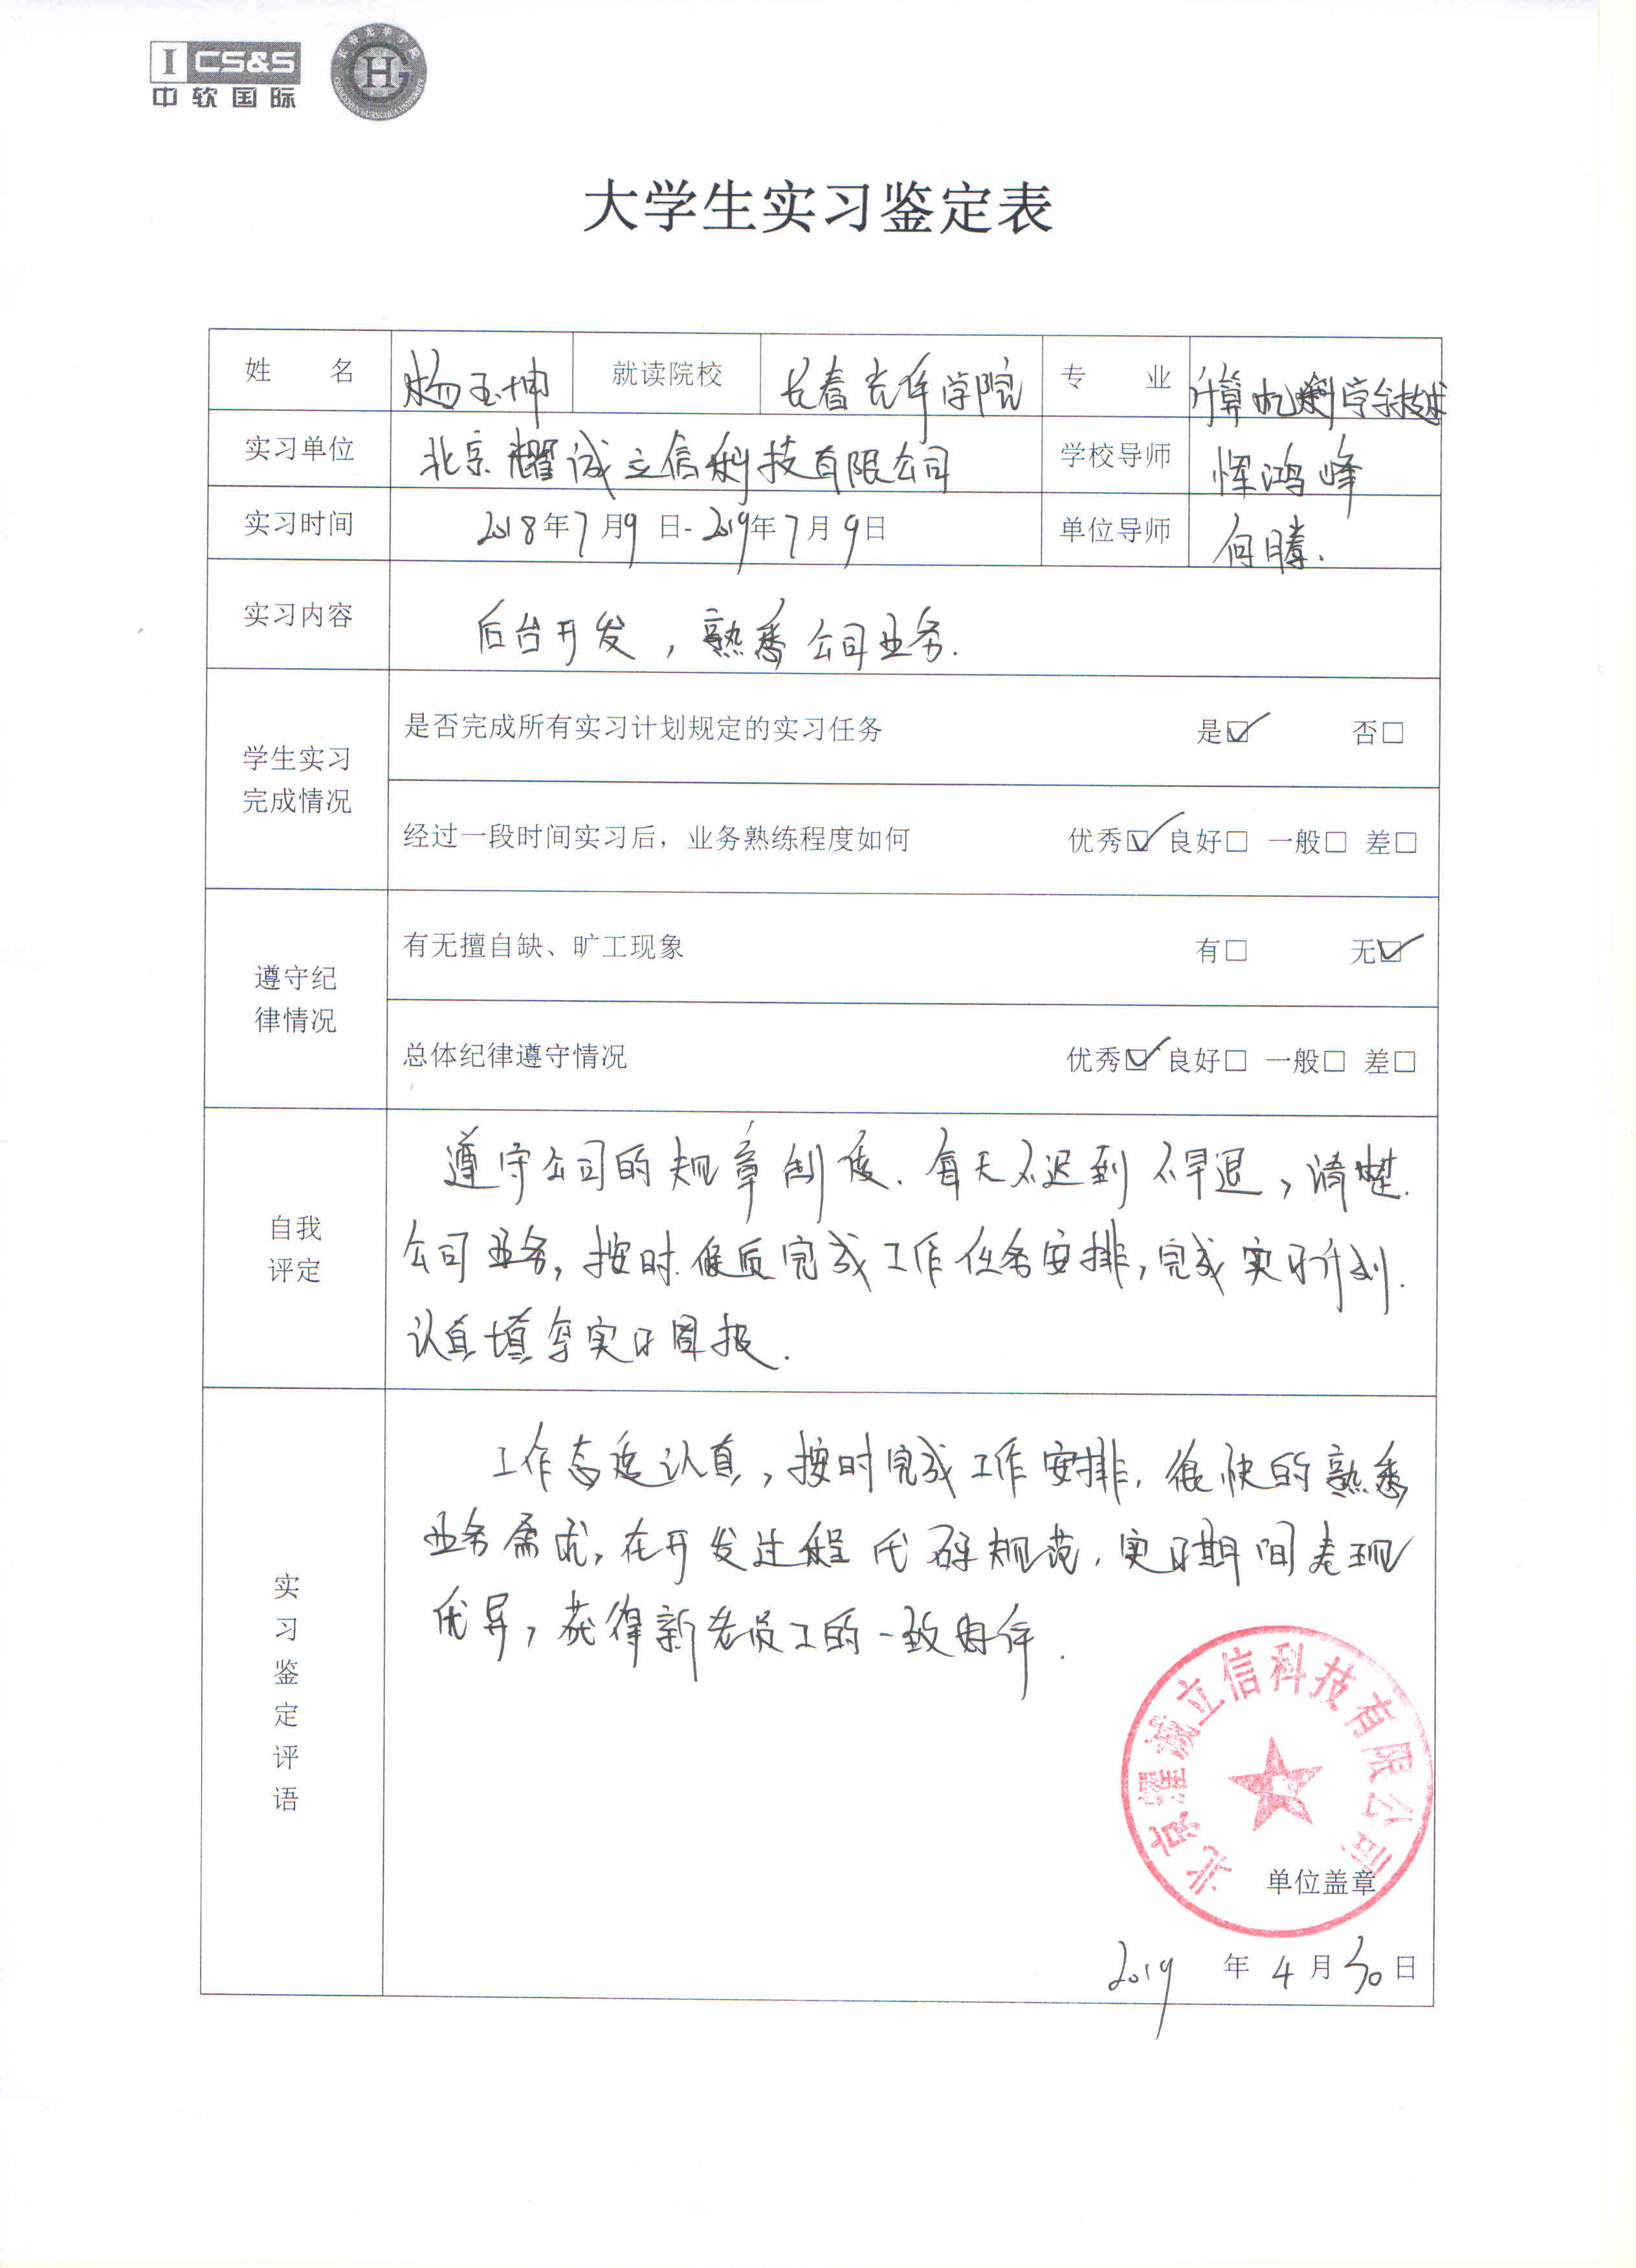 I CS&S
中软国际
长春光华学院
CHANGCHUN GUANGHUA UNIVERSITY
大学生实习鉴定表
姓 名 杨玉坤 就读院校 长春光华学院 专 业 计算机科学与技术
实习单位 北京耀诚立信科技有限公司 学校导师 恽鸿峰
实习时间 2018年7月9日-2019年7月9日 单位导师 何腾.
实习内容 后台开发,熟悉公司业务.
学生实习
完成情况
是否完成所有实习计划规定的实习任务 是☑ 否□
经过一段时间实习后,业务熟练程度如何 优秀☑ 良好□ 一般□ 差□
遵守纪
律情况
有无擅自缺、旷工现象 有□ 无☑
总体纪律遵守情况 优秀☑ 良好□ 一般□ 差□
自我
评定
遵守公司的规章制度.每天不迟到不早退,清楚.
公司业务,按时.保质完成工作任务安排,完成实习计划.
认真填写实习周报.
实习鉴定评语
工作态度认真,按时完成工作安排.很快的熟悉
业务需求,在开发过程代码规范.实习期间表现
优异,获得新老员工的一致好评.
北京耀诚立信科技有限公司
单位盖章
2019 年 4 月 30 日